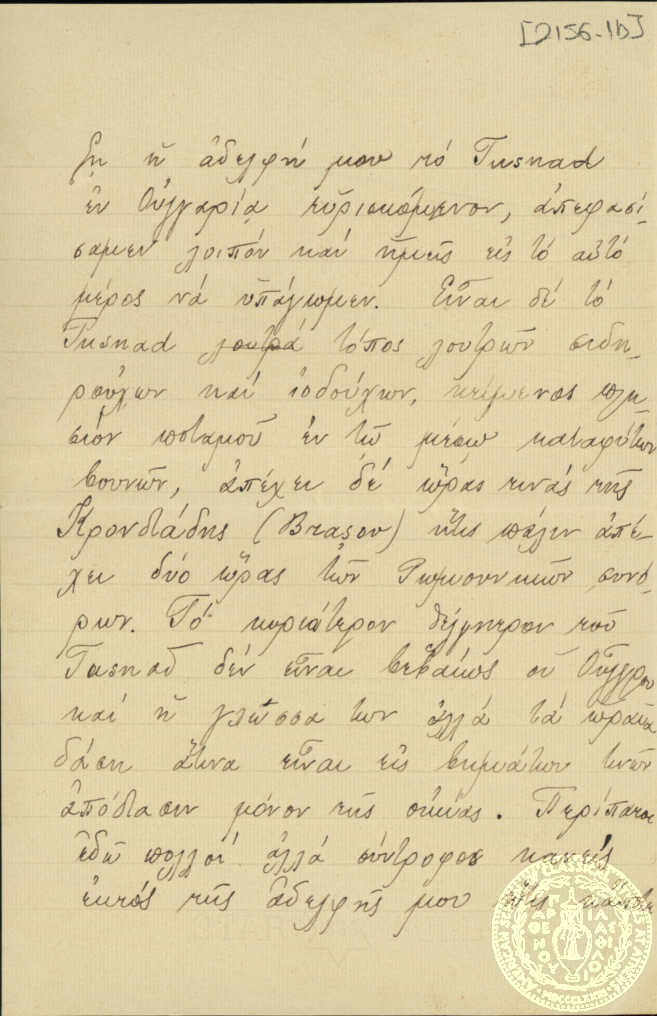 [2156-1b]
ζῃ ἡ ἀδελφή μου τό Tusnad
ἐν Οὑγγαρίᾳ εὑρισκόμενον, ἀπεφασί-
σαμεν λοιπόν καί ἡμεῖς εἰς τό αὐτό
μέρος νά ὑπάγωμεν. Εἶναι δέ τό
Tusnad λουτρά τόπος λουτρῶν σιδη-
ρούχων καί ἰοδούχων, κείμενος πλη-
σίον ποταμοῦ ἐν τῷ μέσῳ καταφύτων
βουνῶν, ἀπέχει δέ ὥρας τινάς τῆς
Κρονστάδης (Brasov) ἥτις πάλιν ἀπέ-
χει δύο ὥρας τῶν Ρωμουνικῶν συνό-
ρων. Τό κυριώτερον θέλγητρον τοῦ
Tusnad δέν εἶναι βεβαίως οἱ Οὗγγροι
καί ἡ γλῶσσα των ἀλλά τά ὡραῖα
δάση ἅτινα εἶναι εἰς βημάτων τινῶν
ἀπόστασιν μόνον τῆς οἰκίας. Περίπατοι
ἐδῶ πολλοί ἀλλά σύντροφος κανείς
ἐκτός τῆς ἀδελφῆς μου ἥτις